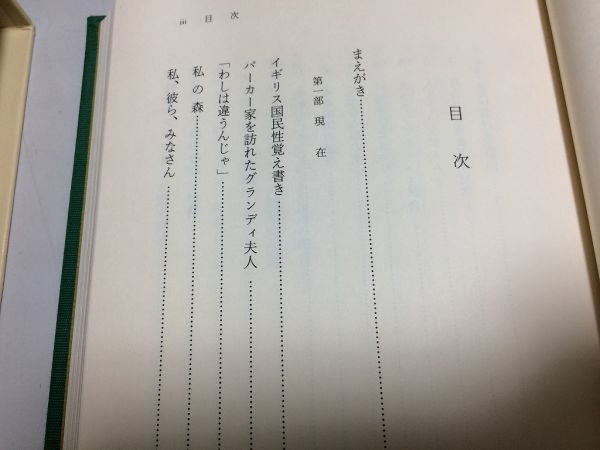 iii 目次
目次
まえがき
第一部 現在
イギリス国民性覚え書き
パーカー家を訪れたグランディ夫人
「わしは違うんじゃ」
私の森
私、彼ら、みなさん